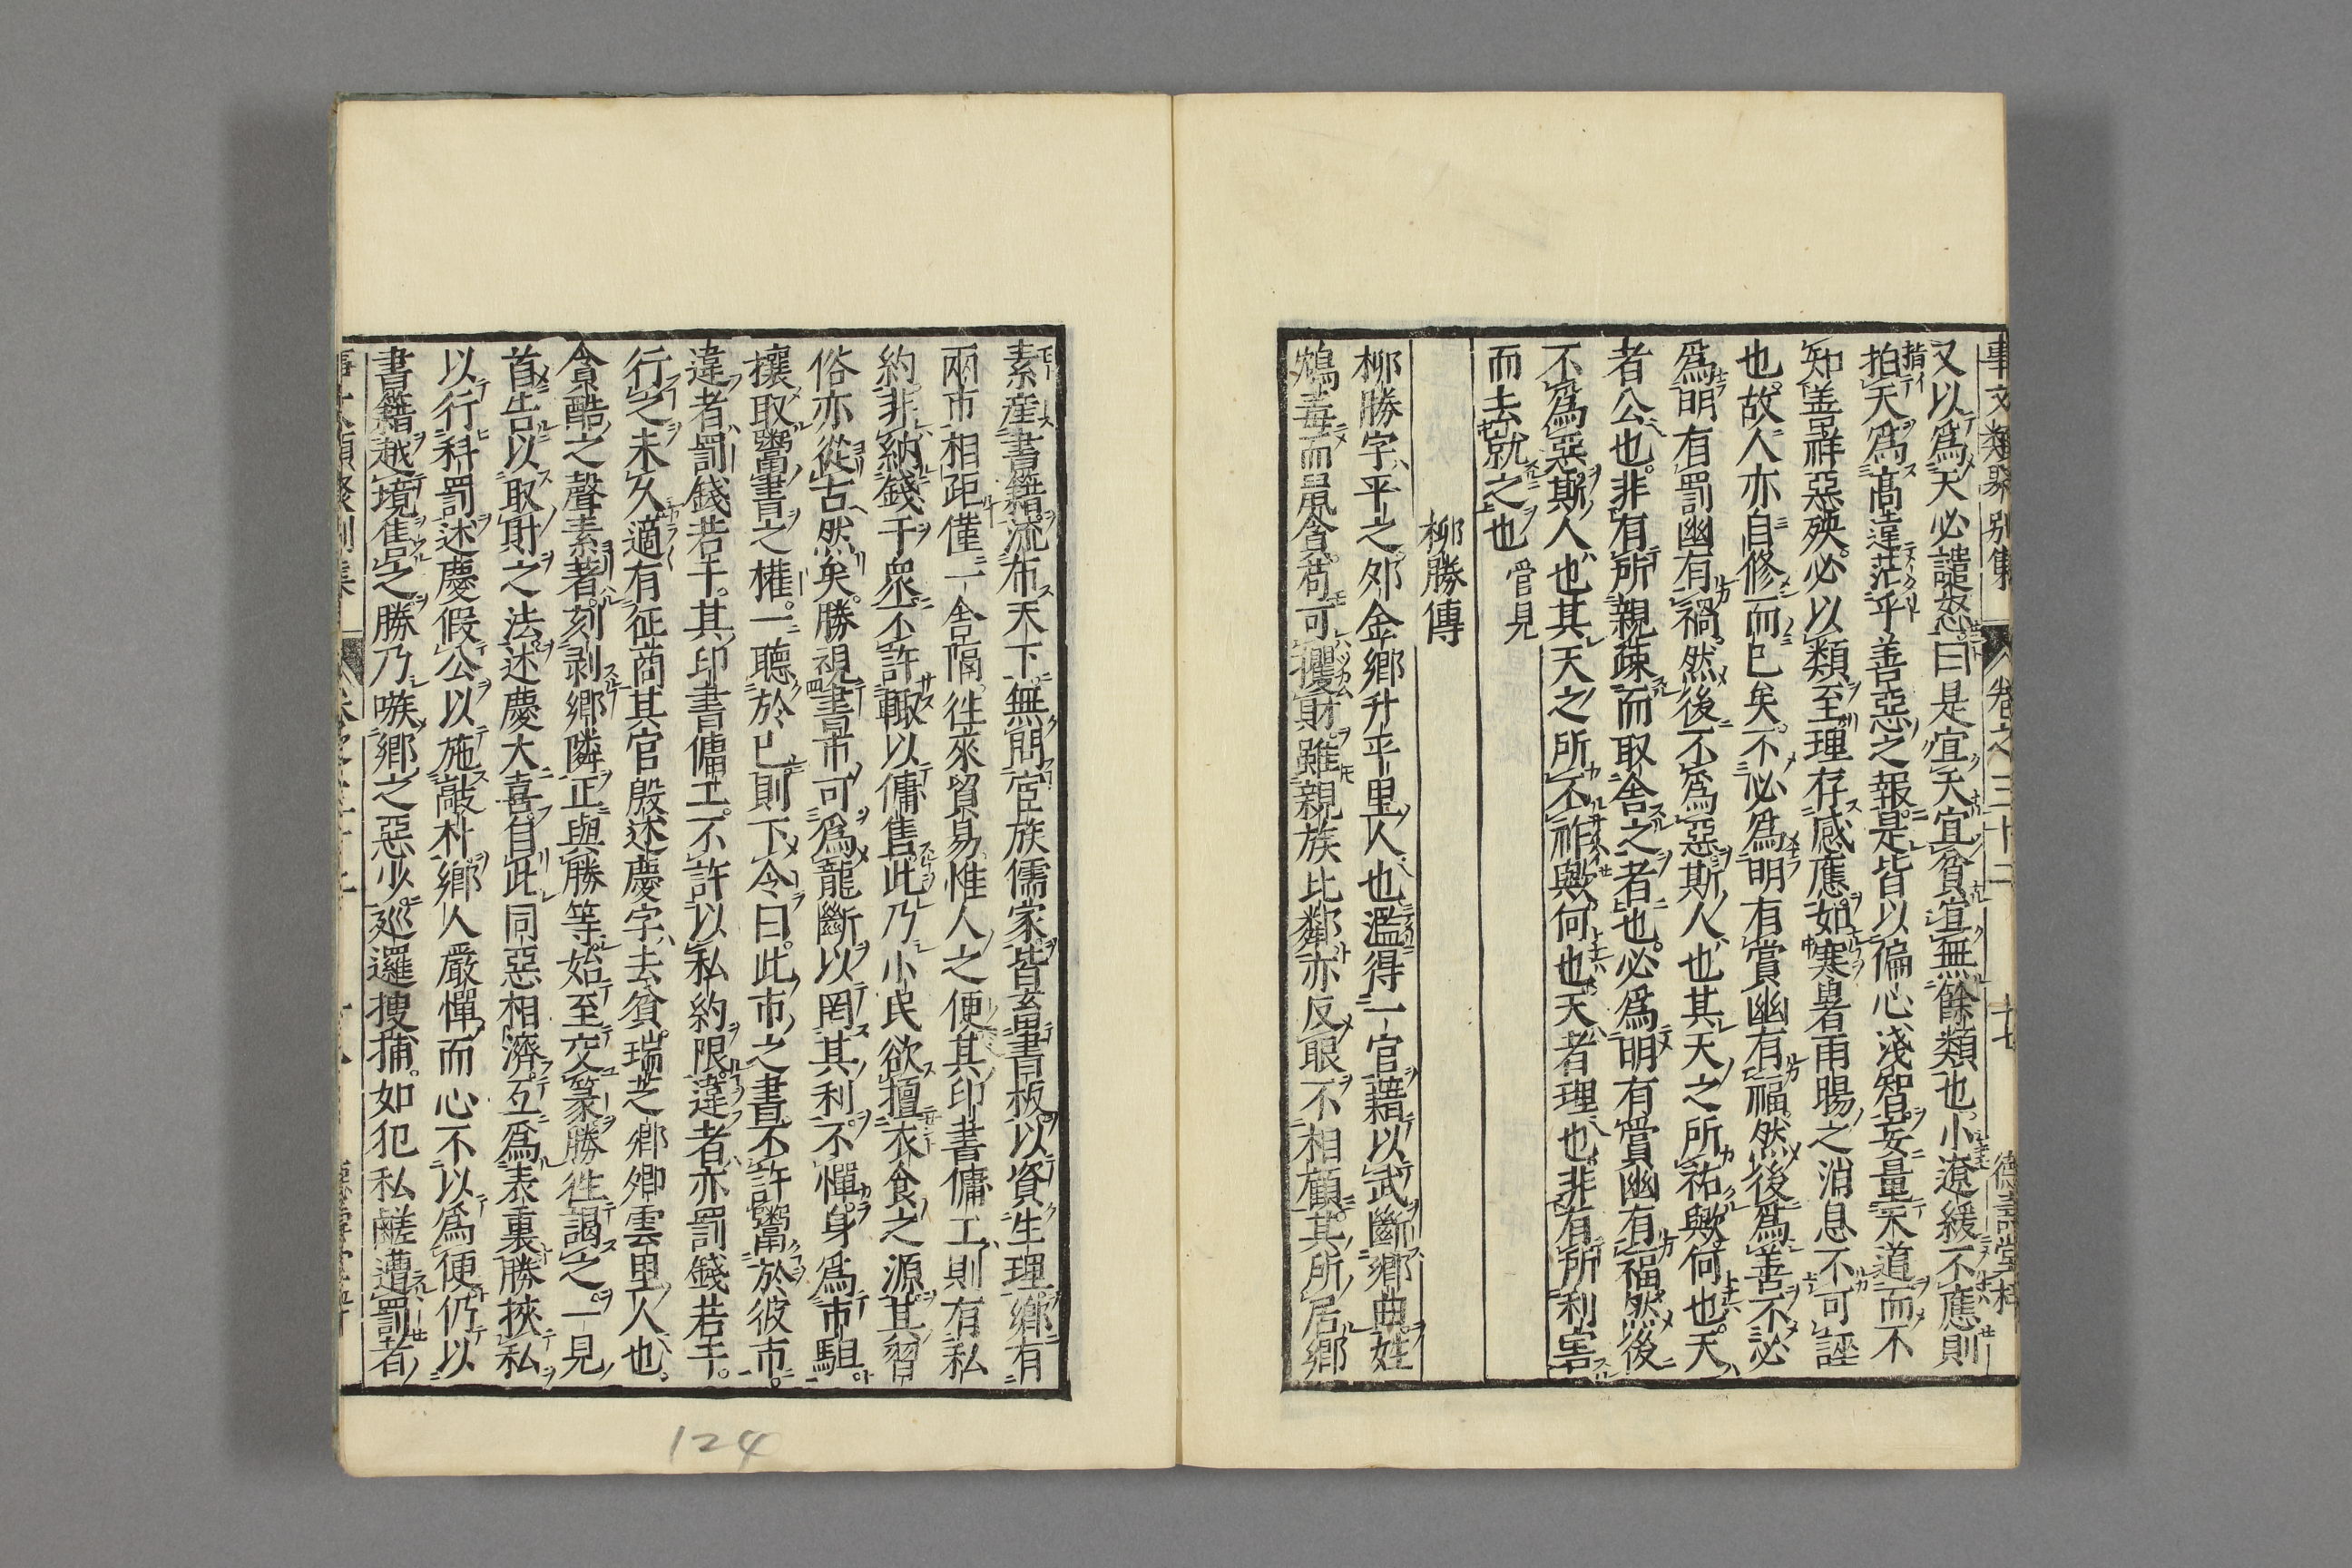 事文類聚別集 卷之三十二 十七 德壽堂梓
又以爲天必譴怒曰是宜夭宜貧宜無餘類也小遼緩不應則
拍天爲高遠茫乎善惡之報是皆以偏心淺智妄量天道而不
知善祥惡殃必以類至理存感應如寒暑雨暘之消息不可誣
也故人亦自修而已矣不必爲明有賞幽有福然後爲善不必
爲明有罰幽有禍然後不爲惡斯人也其天之所祐歟何也天
者公也非有所親疎而取舍之者也必爲明有賞幽有福然後
不爲惡斯人也其天之所不祚歟何也天者理也非有所利害
而去就之也 管見
柳勝傳
柳勝字平之邜金鄉升平里人也濫得一官藉以武斷鄉曲姓
鴆毒而鼠貪苟可攫財雖親族比鄰亦反眼不相顧其所居鄉
素産書籍流布天下無問宦族儒家皆畜書板以資生理鄉有
兩市相距僅一舍隔徃來貿易惟人之便其印書傭工則有私
約非納錢于衆不許輙以傭售此乃小民欲擅衣食之源其習
俗亦從古然矣勝視書市可爲龍斷以罔其利不憚身爲市駔
攘取鬻書之權一聽於已則下令曰此市之書不許鬻於彼市
違者罰錢若干其印書傭工不許以私約限違者亦罰錢若干
行之未久適有征商其官殷述慶字去貧瑞芝鄉卿雲里人也
貪酷之聲素著刻剥鄉隣正與勝等始至交篆勝徃謁之一見
首告以取財之法述慶大喜自此同惡相濟互爲表裏勝挾私
以行科罰述慶假公以施敲朴鄉人嚴憚而心不以爲便仍以
書籍越境售之勝乃嗾鄉之惡少廵邏搜捕如犯私鹺遭罰者
124